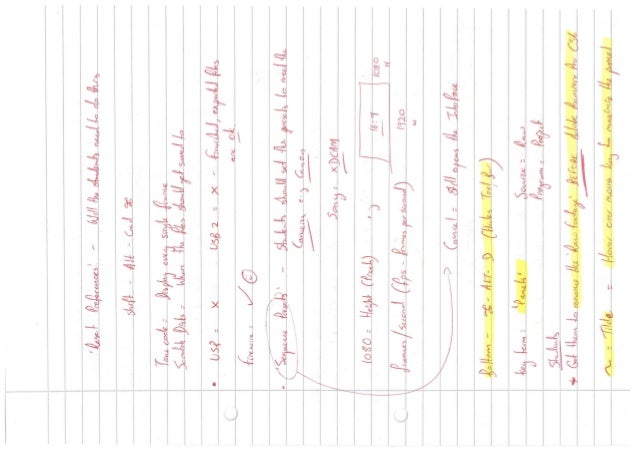 'Reset Preferences' - Will the students need to do this
Shift - Alt - Cmd ⌘
Time code = Display every single frame
Scratch Disks = Where the files should get saved to
• USB = X USB 2 = X - Finished, exported files are ok
Firewire: ✓
• 'Sequence Presets' - Students should set the presets to meet the
Camera e.g Canon
Sony = XDCAM
1080 = Height (Pixels) 16:9 1080
1920
frames/second (fps - frames per second)
Cancel = still opens the Interface
Bottom = ⌘ - ALT - D
Key term: 'Panels' Source = Raw
Program = Project
Students
* Get them to rename the 'Raw footage' BEFORE in CS6
~ = Tilde = Hover over mouse key to maximise the panel